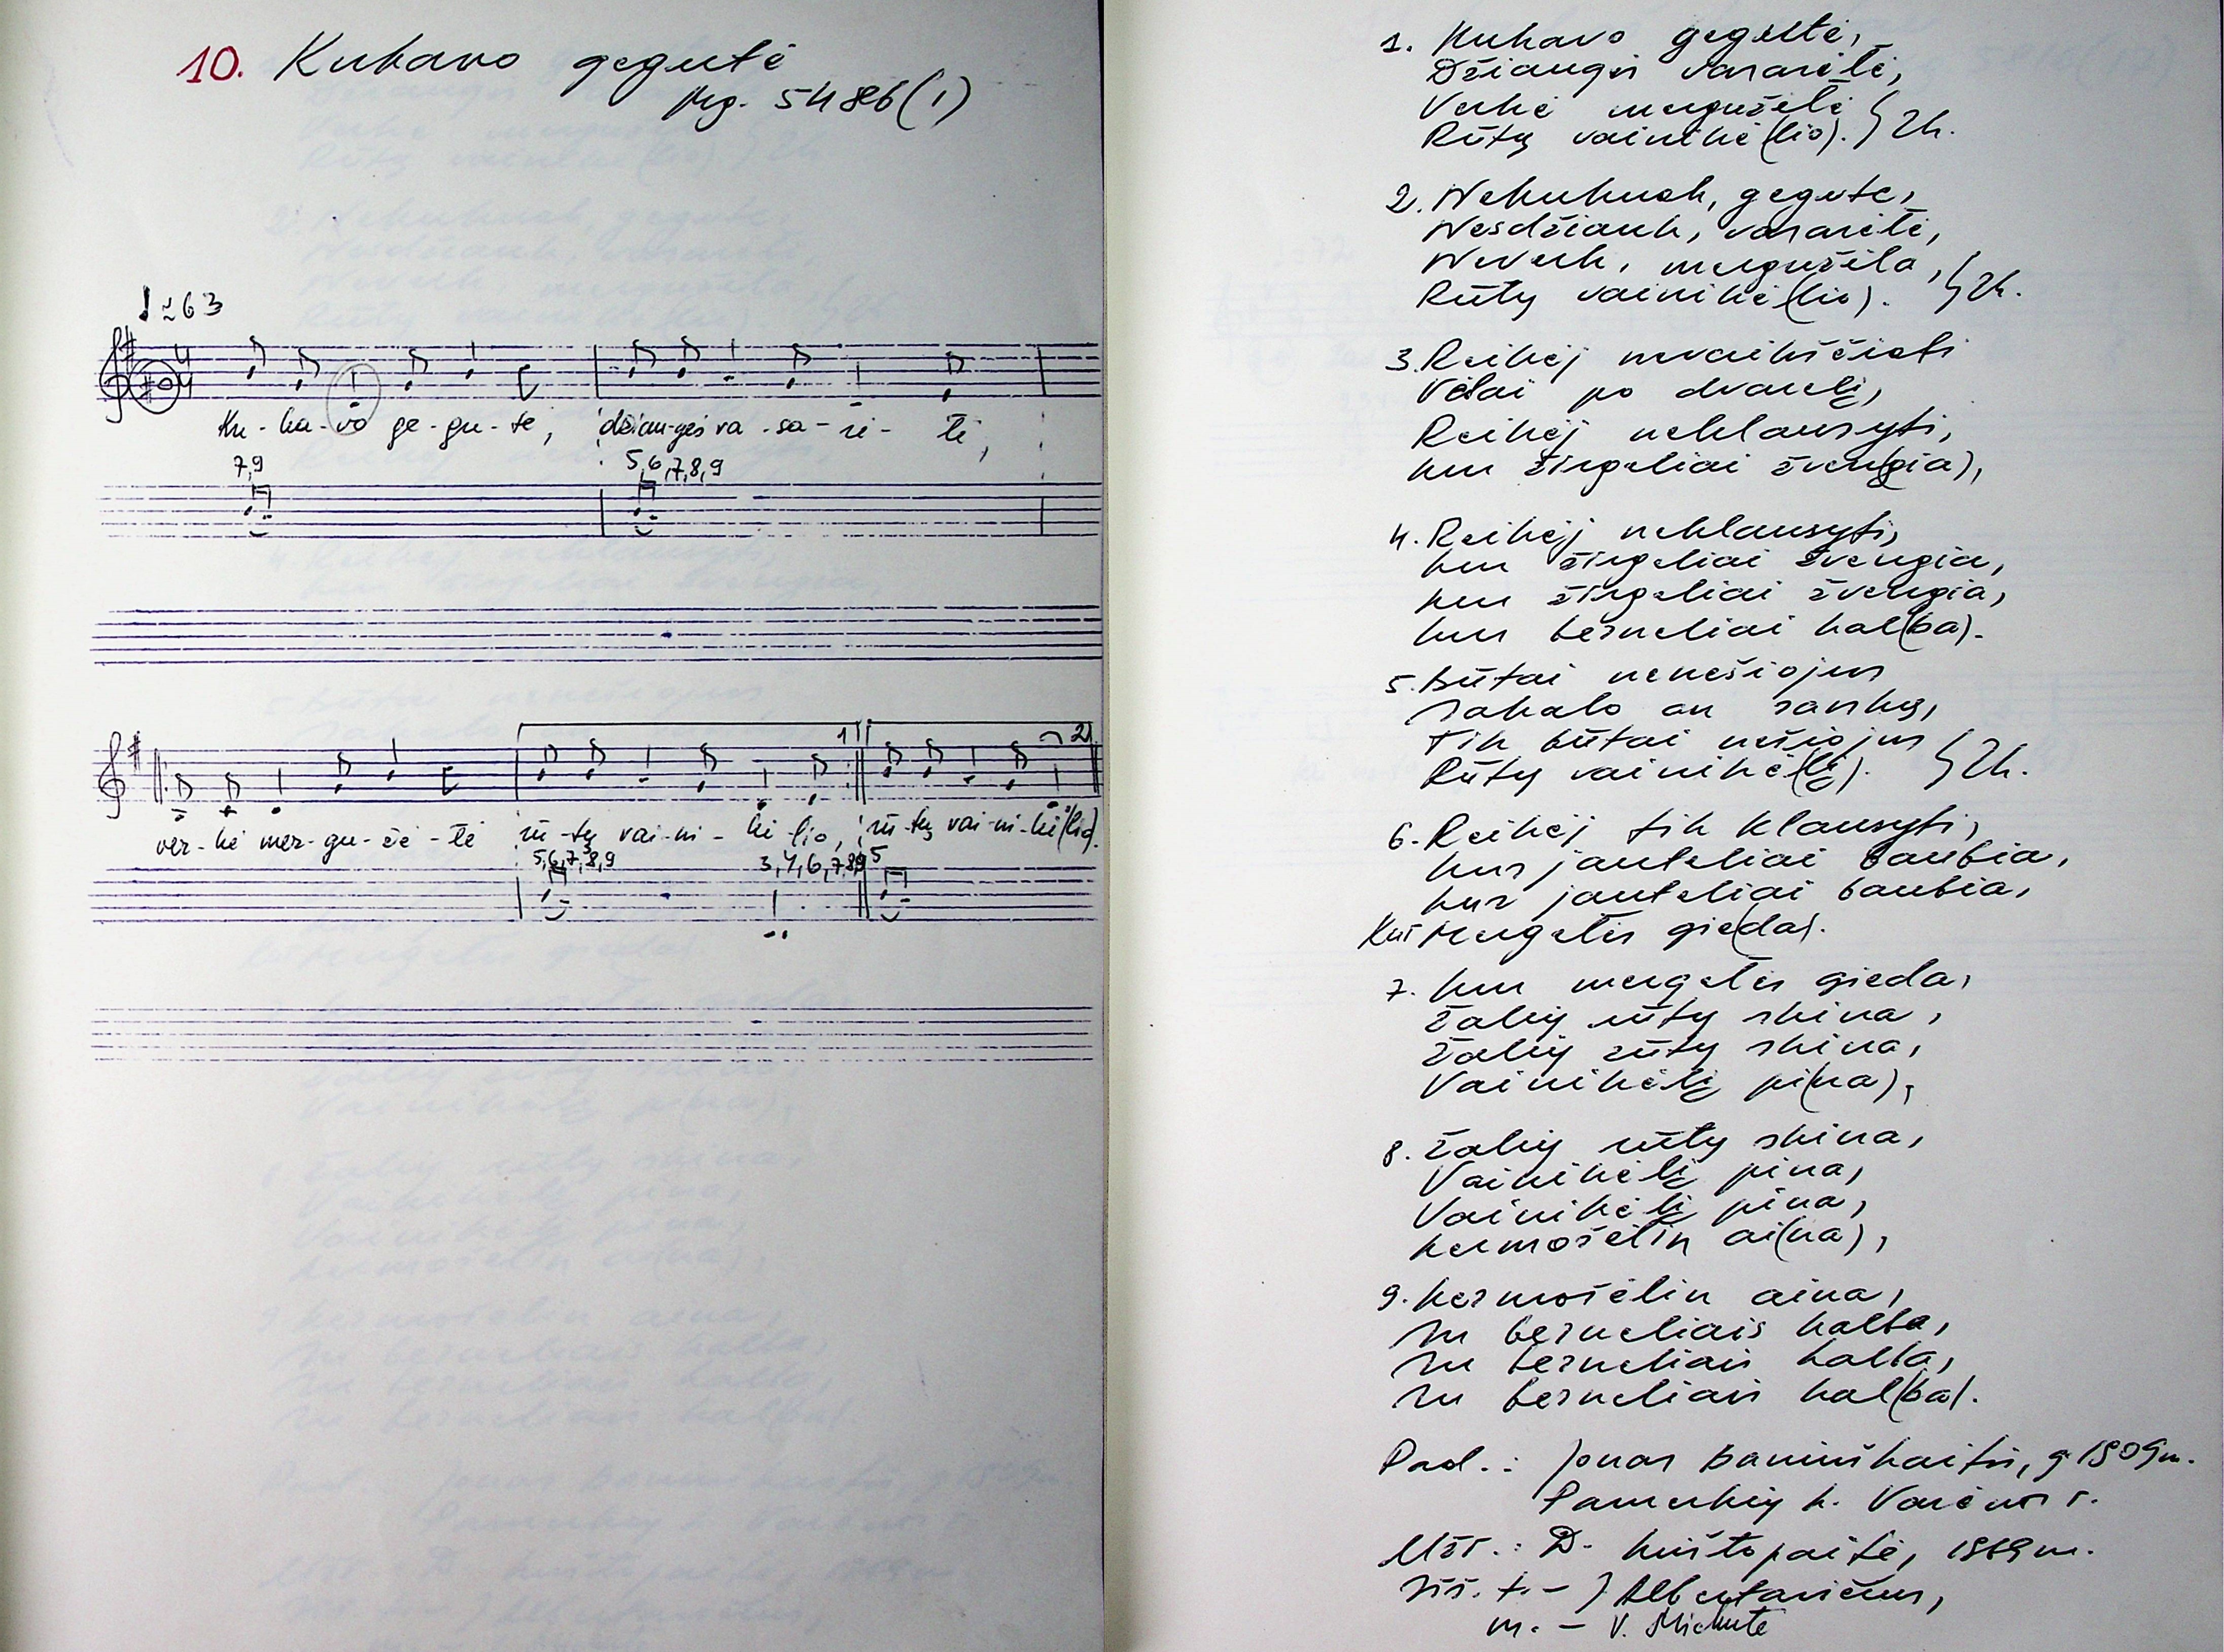 10. Kukavo gegutė
Mg. 5486(1)
♩≈63
Ku-ka-vo ge-gu-tė, džiau-gės va-sa-rė-lė,
7,9 5,6,7,8,9
ver-kė mer-gu-žė-lė rū-tų vai-ni-kė-lio, rū-tų vai-ni-kė(lio).
5,6,7,8,9 3,4,6,7,8,9 5
1. Kukavo gegutė,
Džiaugės vasarėlė,
Verkė mergužėlė
Rūtų vainikė(lio). } 2k.
2. Nekukuok, gegute,
Nesdžiauk, vasarėlė,
Neverk, mergužėla,
Rūtų vainikė(lio). } 2k.
3. Reikėj nevaikščioti
Vėlai po dvarelį,
Reikėj neklausyti,
kur žirgeliai žven(gia),
4. Reikėj neklausyti,
kur žirgeliai žvengia,
kur žirgeliai žvengia,
kur berneliai kal(ba).
5. Būtai nenešiojus
sakalo an rankų,
Tik būtai nešiojus
Rūtų vainikė(lį). } 2k.
6. Reikėj tik klausyti,
kur jauteliai baubia,
kur jauteliai baubia,
Kur mergelės gie(da).
7. kur mergelės gieda,
žalių rūtų skina,
žalių rūtų skina,
Vainikėlį pi(na),
8. žalių rūtų skina,
Vainikėlį pina,
Vainikėlį pina,
kermošėlin ai(na),
9. kermošėlin aina,
su berneliais kalba,
su berneliais kalba,
su berneliais kal(ba).
Pad.: Jonas g. 1909 m.
Pamerkių k. Varėnos r.
Užr.: D. Krištopaitė, 1969 m.
Šif. t. –
m. – V. Mickutė